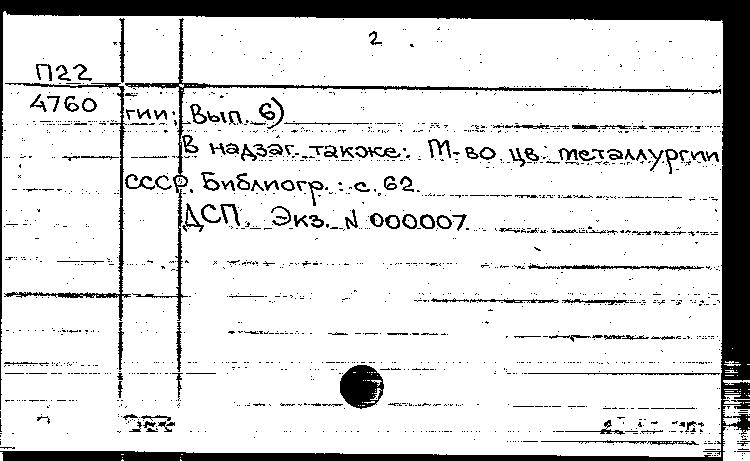 2
П22
4760
гии; Вып. 6)
В надзаг. также: М-во цв. металлургии
СССР. Библиогр.: с. 62
ДСП. Экз. N 000007